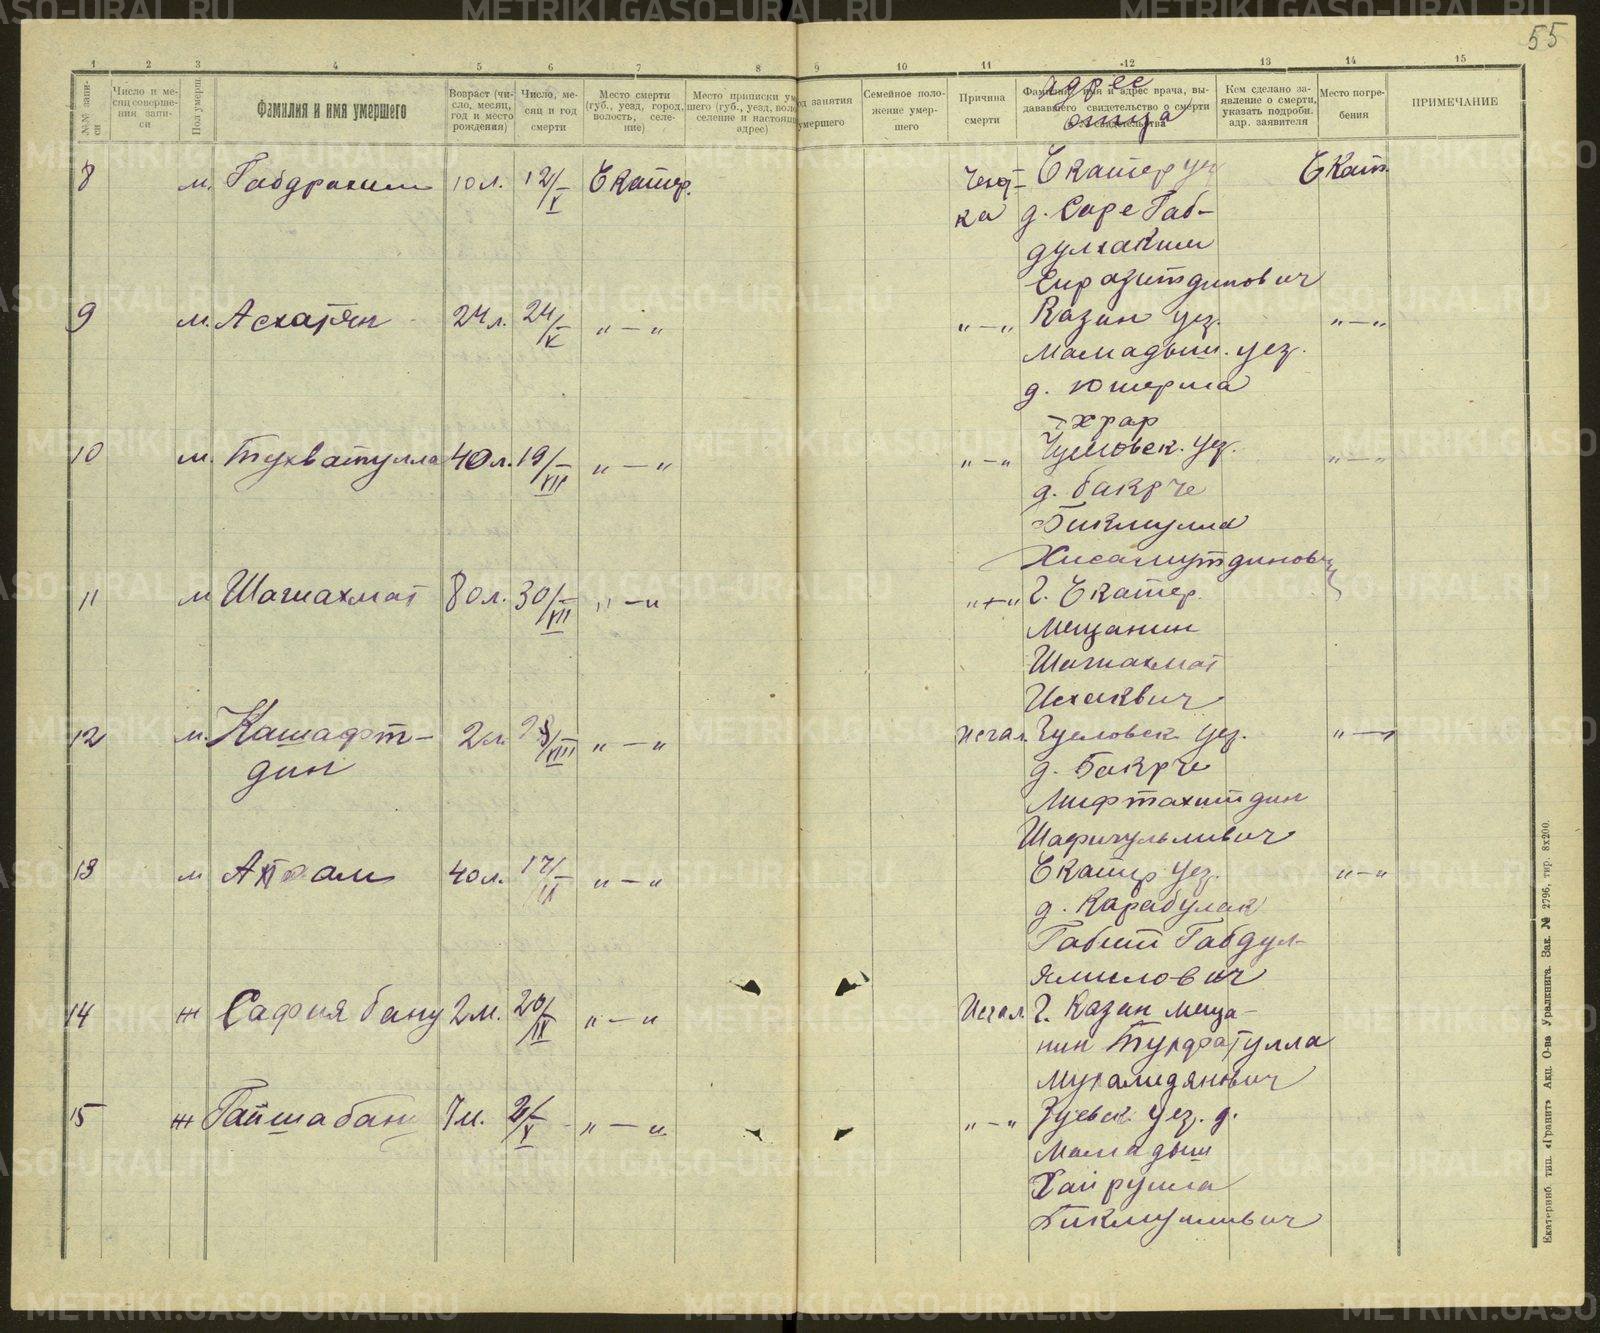 55
1 2 3 4 5 6 7 8 9 10 11 12 13 14 15
№№ записи
Число и месяц совершения записи
Пол умерш.
Фамилия и имя умершего
Возраст (число, месяц, год и место рождения)
Число, месяц и год смерти
Место смерти (губ., уезд, город, волость, селение)
Место приписки умершего (губ., уезд, воло селение и настоящ адрес)
од занятия умершего
Семейное положение умершего
Причина смерти
Фамилия, имя и адрес врача, выдававшего свидетельство о смерти
адрес отца
Кем сделано заявление о смерти, указать подробн. адр. заявителя
Место погребения
ПРИМЕЧАНИЕ
8 м. Габдрахим 10 л. 12/V Екатер. Чахотка Екатер уз Екат.
д. Саре Габ-
дулхаким
Сиразитдинович
9 м. Асхатян 24 л. 24/V „ — „ „ — „ Казан уез. „ — „
Мамадыш. уез.
д. Юшерма
Ахрар
10 м. Тухватулла 40 л. 19/VII „ — „ „ — „ Чумовск. уез. „ — „
д. бакрче
Бикмулла
Хисамутдинович
11 м Шагиахмат 80 л. 30/VII „ — „ „ — „ г. Екатер.
Мещанин
Шагиахмат
Исхаквич
12 м. Кашафт-
дин 2 л. 28/VIII „ — „ неизл. уез. „ — „
д. Бакрче
Мифтахитдин
Шафигульливич
13 м 40 л. 17/IX „ — „ Екатер уез. „ — „
д. Карабулак
Габит Габдул-
ямилович
14 ж София бану 2 м. 20/IX „ — „ г. Казан меща-
нин Турфатулла
Мухамедянович
15 ж Гайша бану 7 м. 2/X „ — „ „ — „ уез. д.
Мамадыш
Хайрулла
Бикмуллович
Екатеринб. тип. «Гранит» Акц. О-ва Уралкнига. Зак. № 2796, тир. 8х200.
METRIKI.GASO-URAL.RU